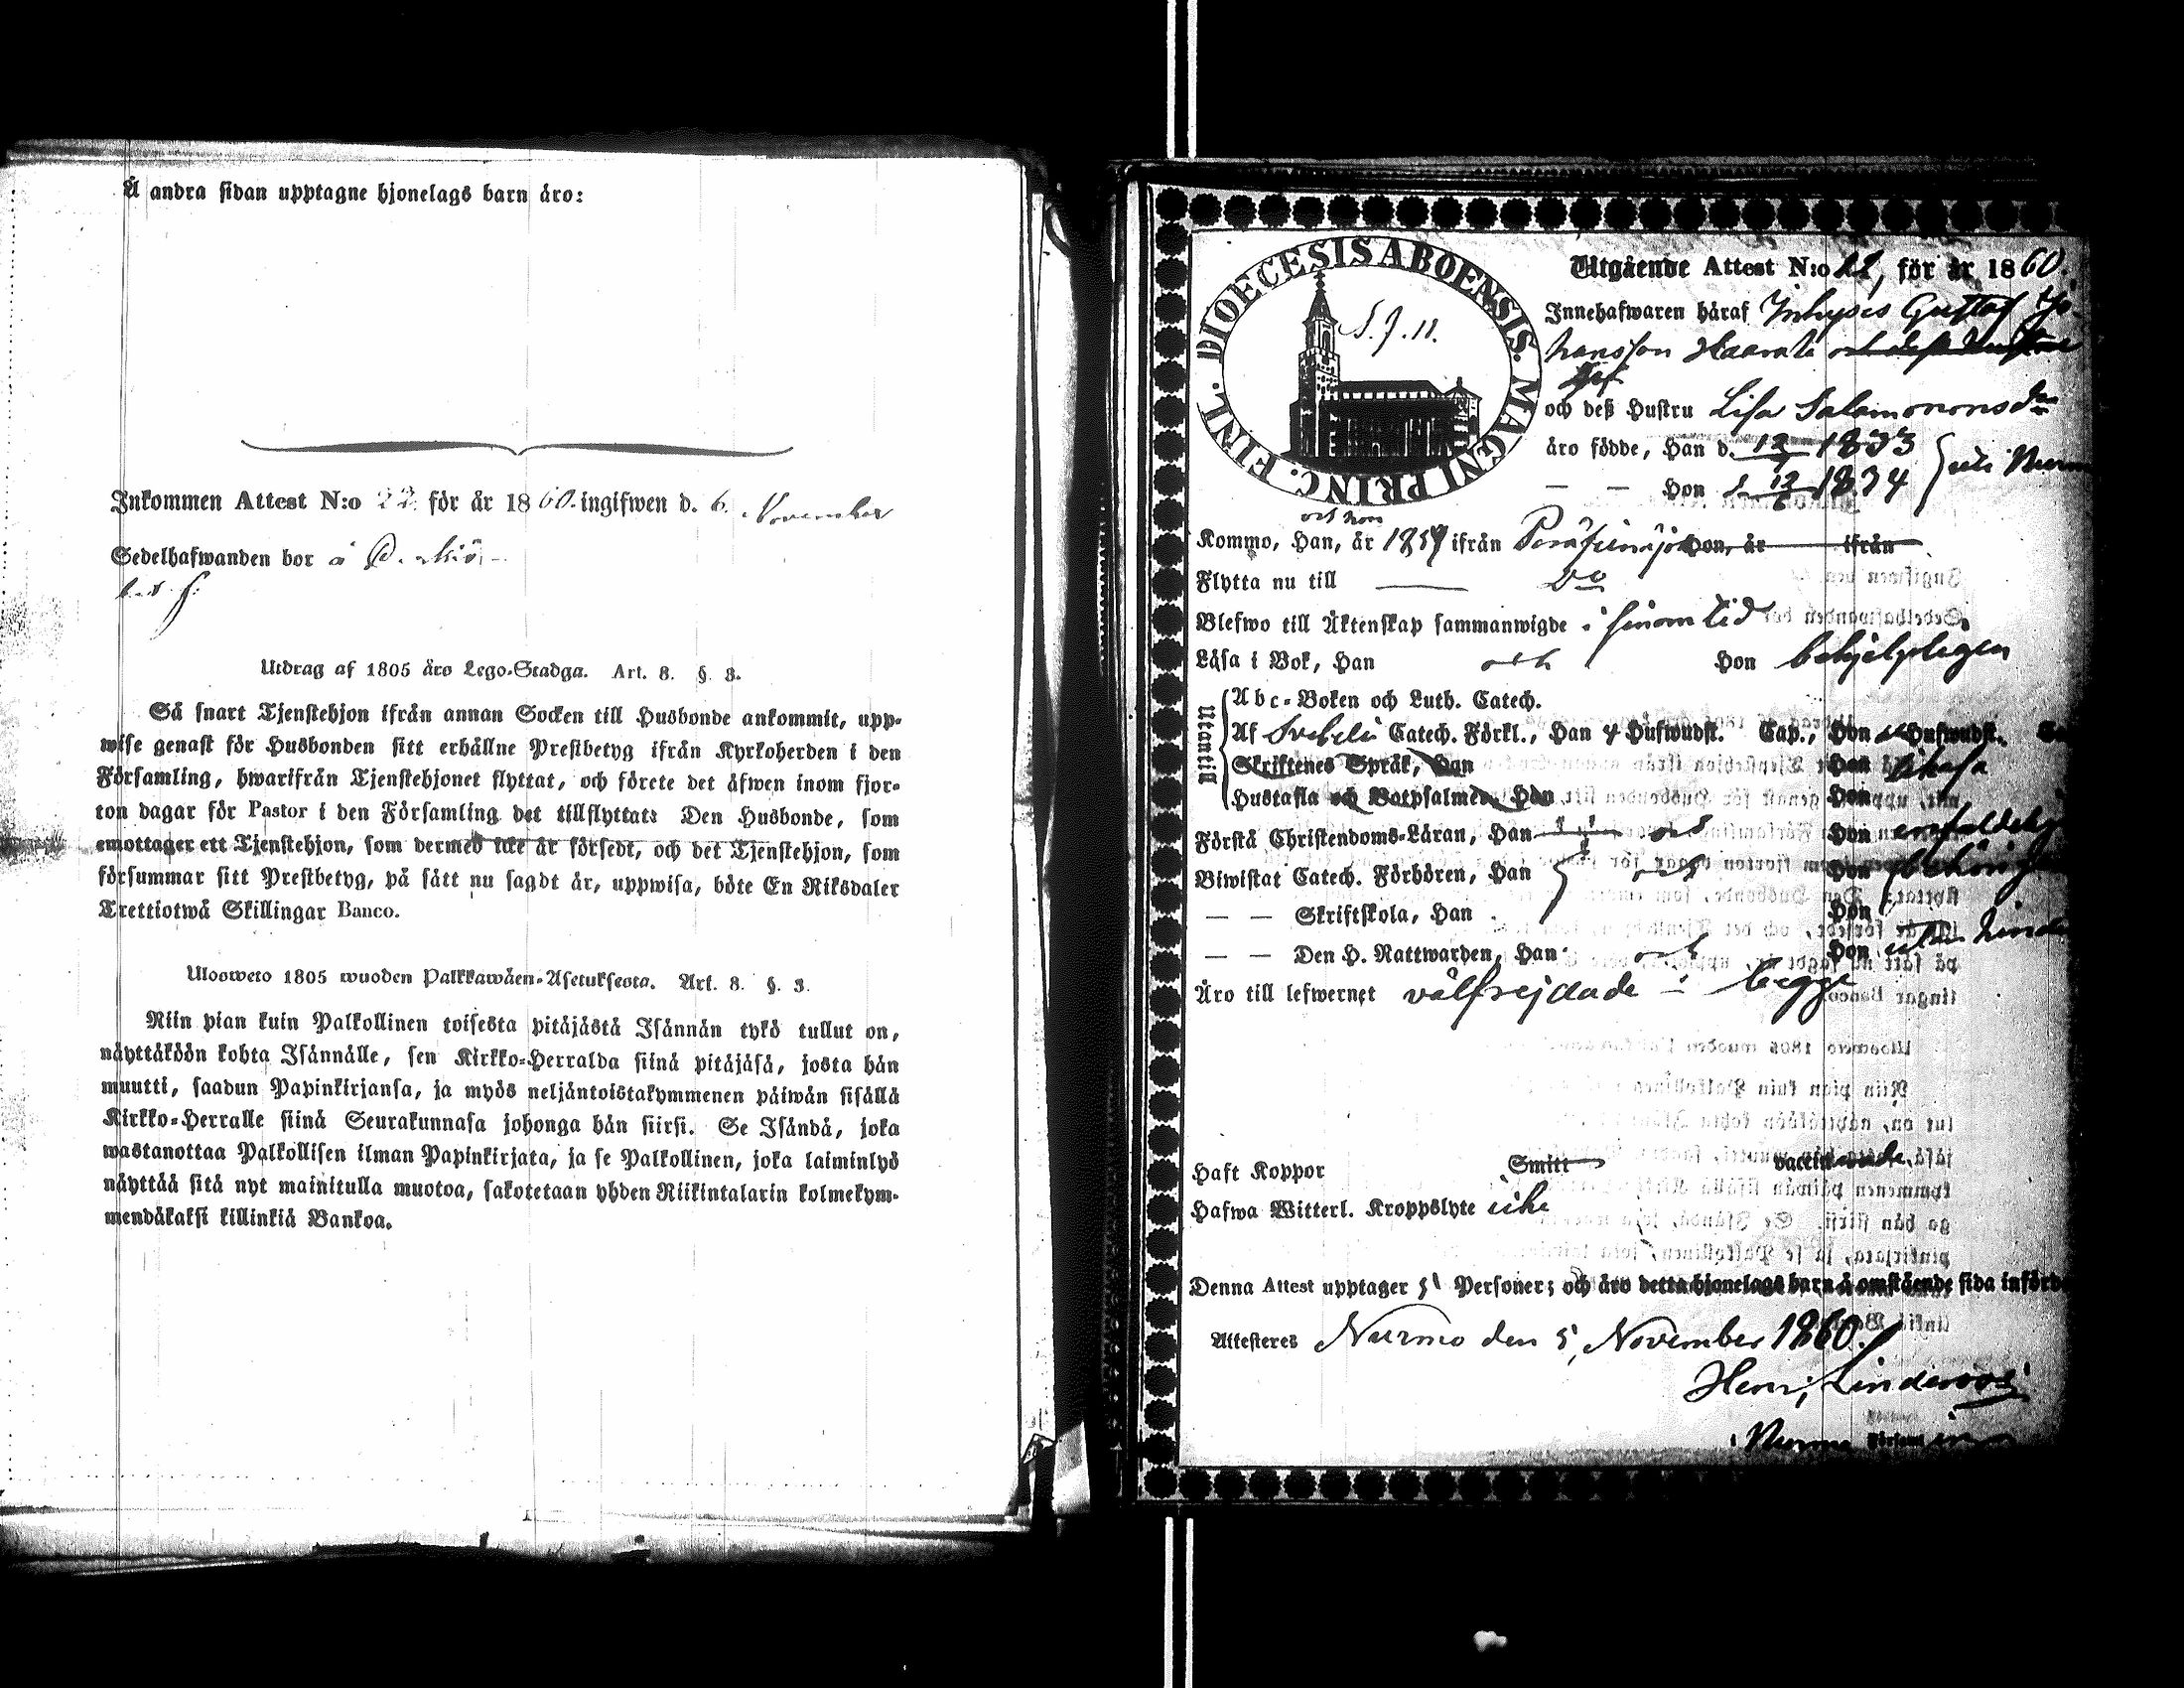 Å andra sidan upptagne hjonelags barn äro:
Inkommen Attest N:o 22 för år 1860. ingifwen d. 6. November
Sedelhafwanden bor å
Utdrag af 1805 års Lego-Stadga. Art. 8. §. 3.
Så snart Tjenstehjon ifrån annan Socken till Husbonde ankommit, upp-
wise genast för Husbonden sitt erhållne Prestbetyg ifrån Kyrkoherden i den
Församling, hwarifrån Tjenstehjonet flyttat, och förete det äfwen inom fjor-
ton dagar för Pastor i den Församling det tillflyttat: Den Husbonde, som
emottager ett Tjenstehjon, som dermed icke är försedt, och det Tjenstehjon, som
försummar sitt Prestbetyg, på sätt nu sagdt är, uppwisa, böte En Riksdaler
Trettiotwå Skillingar Banco.
Ulosweto 1805 wuoden Palkkawäen-Asetuksesta. Art. 8. §. 3.
Niin pian kuin Palkollinen toisesta pitäjästä Isännän tykö tullut on,
näyttäköön kohta Isännälle, sen Kirkko-Herralda siinä pitäjäsä, josta hän
muutti, saadun Papinkirjansa, ja myös neljäntoistakymmenen päiwän sisällä
Kirkko-Herralle siinä Seurakunnasa johonga hän siirsi. Se Isändä, joka
wastanottaa Palkollisen ilman Papinkirjata, ja se Palkollinen, joka laiminlyö
näyttää sitä nyt mainitulla muotoa, sakotetaan yhden Riikintalarin kolmekym-
mendäkaksi killinkiä Bankoa.
DIOECESIS ABOENSIS. MAGNI PRINC. FINL.
Utgående Attest N:o 22, för år 1860.
Innehafwaren häraf Inhyses Gustaf Jo-
hansson Haarala
och deß Hustru Lisa Salomonsdr
äro födde, Han d. 12 1833
— — Hon d. 12/6 1834
och hon
Kommo, Han, år 1859 ifrån Hon, år ifrån
Flytta nu till — Do
Blefwo till Äktenskap sammanwigde i sinom tid
Läsa i Bok, Han och Hon behjelpligen
Utantill
Abc-Boken och Luth. Catech.
Af Svebelii Catech. Förkl., Han 4 Hufwudst. Cap., Hon Hufwudst.
Skriftenes Språk, Han Hon
Hustafla och Botpsalmer, Han Hon
Förstå Christendoms-Läran, Han och Hon
Biwistat Catech. Förhören, Han och Hon
— — Skriftskola, Han Hon
— — Den H. Nattwarden, Han och Hon utan
Äro till lefwernet välfrejdade — begge
Haft Koppor Smitt
Hafwa Witterl. Kroppslyte icke
Denna Attest upptager Personer; och äro detta hjonelags barn å omstående sida införde
Attesteras Nurmo den 5 November 1860.